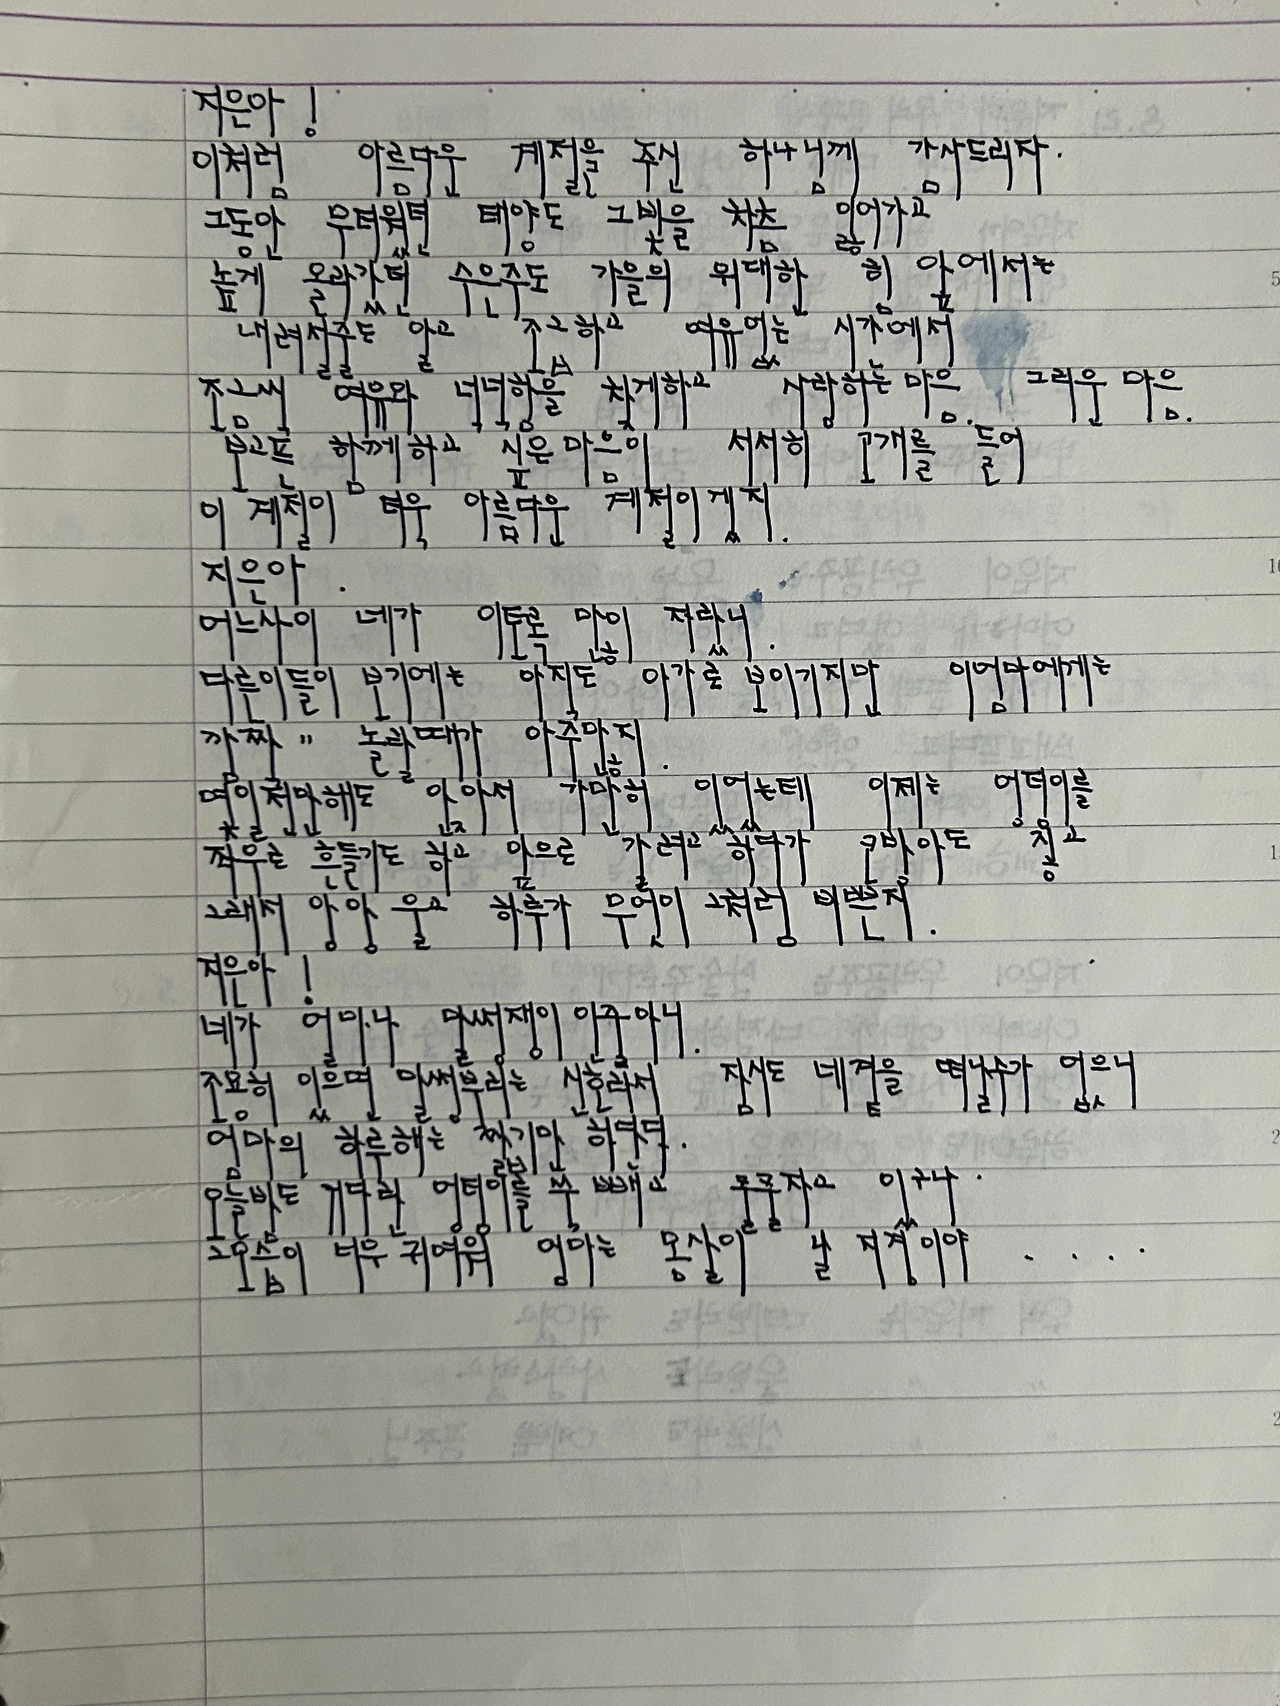 지은아!
이처럼 아름다운 계절을 주신 하나님께 감사드리자.
그동안 무더웠던 태양도 그 빛을 차츰 잃어가고
높게 올라갔던 수은주도 가을의 위대한 힘 앞에서는
내려설줄도 알고 조급하고 여유없는 시간에서
조금씩 여유와 넉넉함을 찾게하고 사랑하는 마음. 그리운 마음.
보고픈 함께하고 싶은 마음이 서서히 고개를 들어
이 계절이 더욱 아름다운 계절이겠지.
지은아.
어느사이 네가 이토록 많이 자랐니.
다른이들이 보기에는 아직도 아가로 보이기지만 이엄마에게는
깜짝 〃 놀랄때가 아주많지.
몇일전만해도 앉아서 가만히 있었는데 이제는 엉덩이를
좌우로 흔들기도 하고 앞으로 갈려고 하다가 코방아도 찧고
그래서 앙앙 울고 하루가 무엇이 그처럼 바쁜지.
지은아!
네가 얼마나 말썽쟁이 인줄 아니.
조용히 있으면 말썽부리는 신호라서 잠시도 네 곁을 떠날수가 없으니
엄마의 하루해는 짧기만 하단다.
오늘밤도 커다란 엉덩이를 쑥 빼고 쿨쿨자고 있구나.
그모습이 너무 귀여워 엄마는 몸살이 날 지경이야 ....